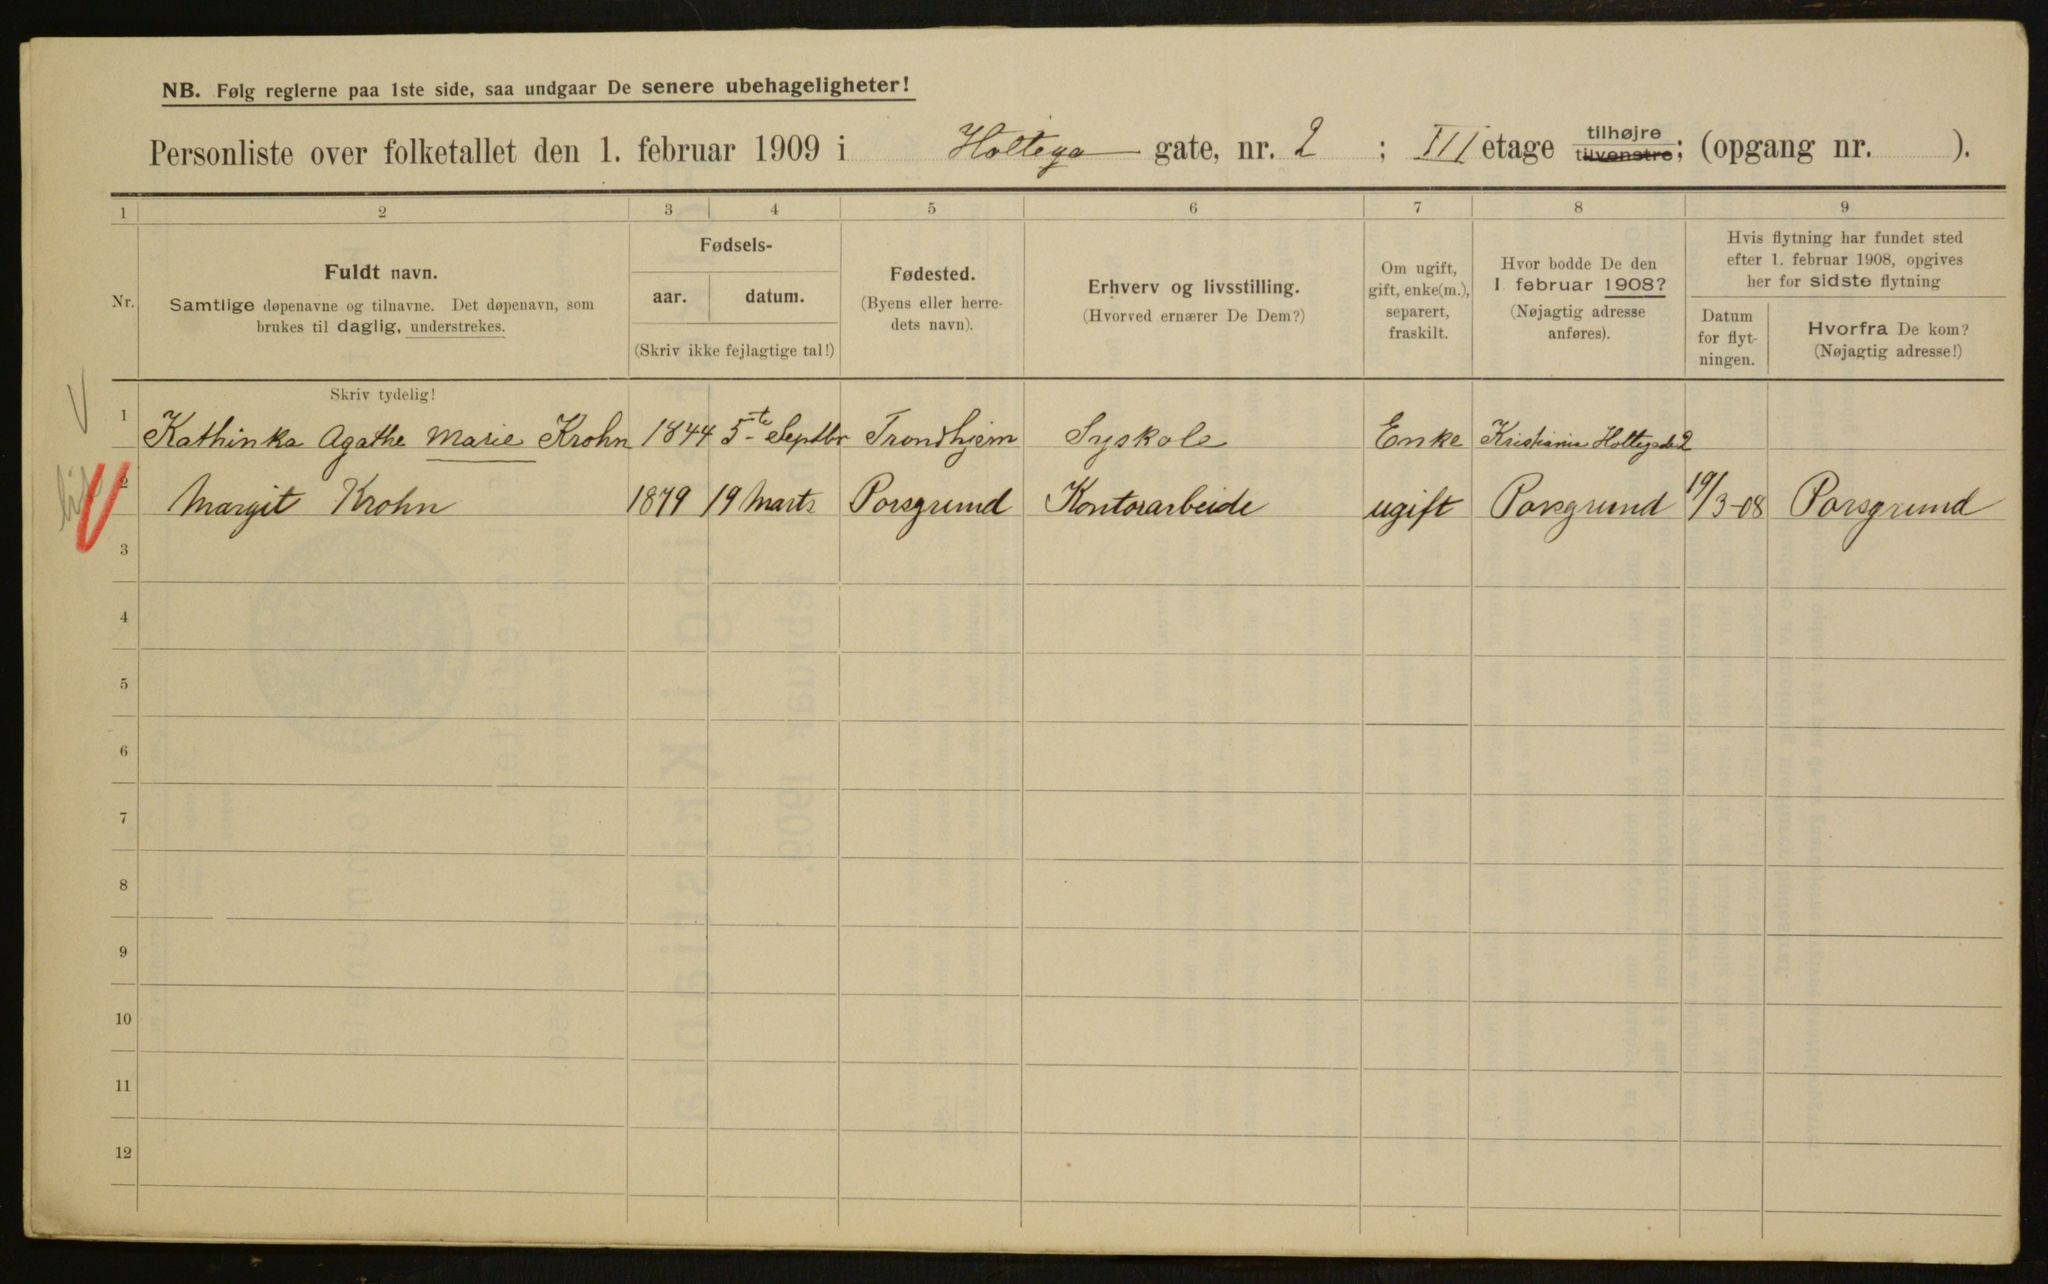 NB. Følg reglerne paa 1ste side, saa undgaar De senere ubehageligheter!
Personliste over folketallet den 1. februar 1909 i Holtega gate, nr. 2 ; III etage tilhøjre tilvenstre; (opgang nr. ).
1 2 3 4 5 6 7 8 9
Nr.
Fuldt navn.
Samtlige døpenavne og tilnavne. Det døpenavn, som
brukes til daglig, understrekes.
Fødsels-
aar. datum.
(Skriv ikke fejlagtige tal!)
Fødested.
(Byens eller herre-
dets navn).
Erhverv og livsstilling.
(Hvorved ernærer De Dem?)
Om ugift,
gift, enke(m.),
separert,
fraskilt.
Hvor bodde De den
1 februar 1908?
(Nøjagtig adresse
anføres).
Hvis flytning har fundet sted
efter 1. februar 1908, opgives
her for sidste flytning
Datum
for flyt-
ningen.
Hvorfra De kom?
(Nøjagtig adresse!)
Skriv tydelig!
1 Kathinka Agathe Marie Krohn 1844 5te Septbr Trondhjem Syskole Enke Kristiania Holtegade 2
2 Margit Krohn 1879 19 Marts Porsgrund Kontorarbeide ugift Porsgrund 19/3-08 Porsgrund
3
4
5
6
7
8
9
10
11
12